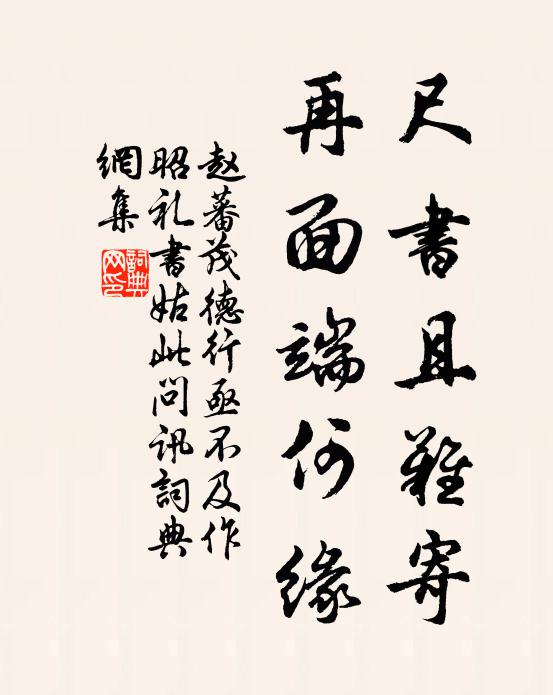 尺書且難寄
再面端何緣
赵蕃茂德行亟不及作
昭礼書姑此問讯詞典
網集
詞典
网印